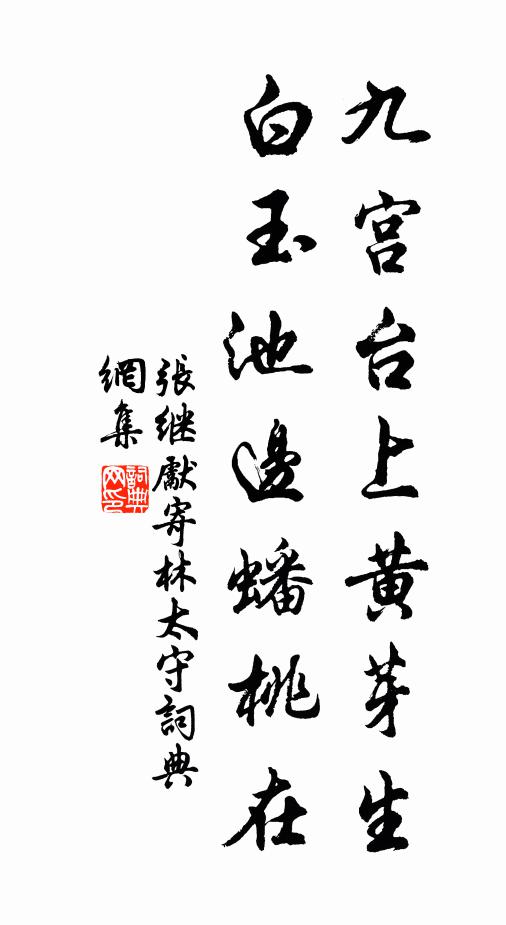 九宮台上黃芽生
白玉池邊蟠桃在
張继獻寄林太守詞典
網集
詞典
网印